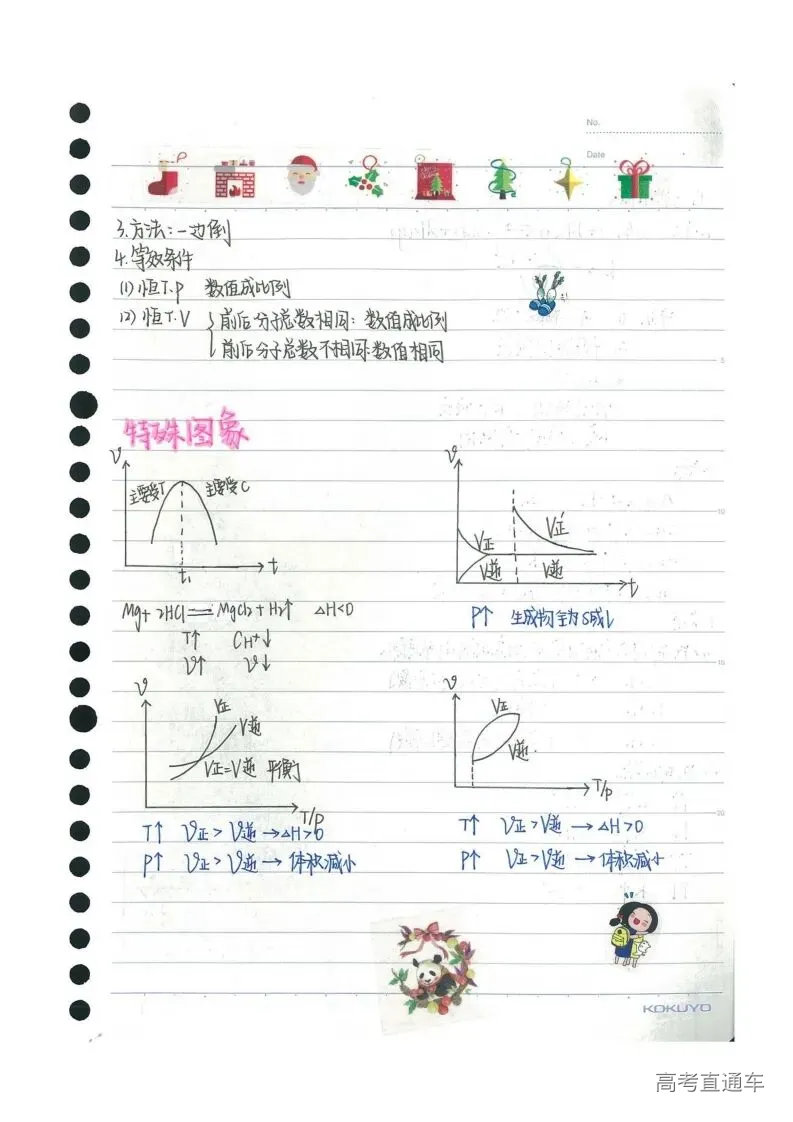 No.
Date
3.方法:一边倒
4.等效条件
(1)恒T.p 数值成比列
(2)恒T.V { 前后分子总数相同:数值成比列
前后分子总数不相同:数值相同
特殊图象
v
主要受T 主要受C
t₁ t
Mg+2HCl══MgCl₂+H₂↑ △H<0
T↑ CH⁺↓
v↑ v↓
v
V正 V正′
V逆 V逆
t
P↑ 生成物全为S或L
v
V正
V逆
V正=V逆 平衡
T/p
T↑ V正>V逆→△H>0
P↑ V正>V逆→体积减小
v
V正
V逆
T/p
T↑ V正>V逆→△H>0
P↑ V正>V逆→体积减小
5
10
15
20
KOKUYO
高考直通车